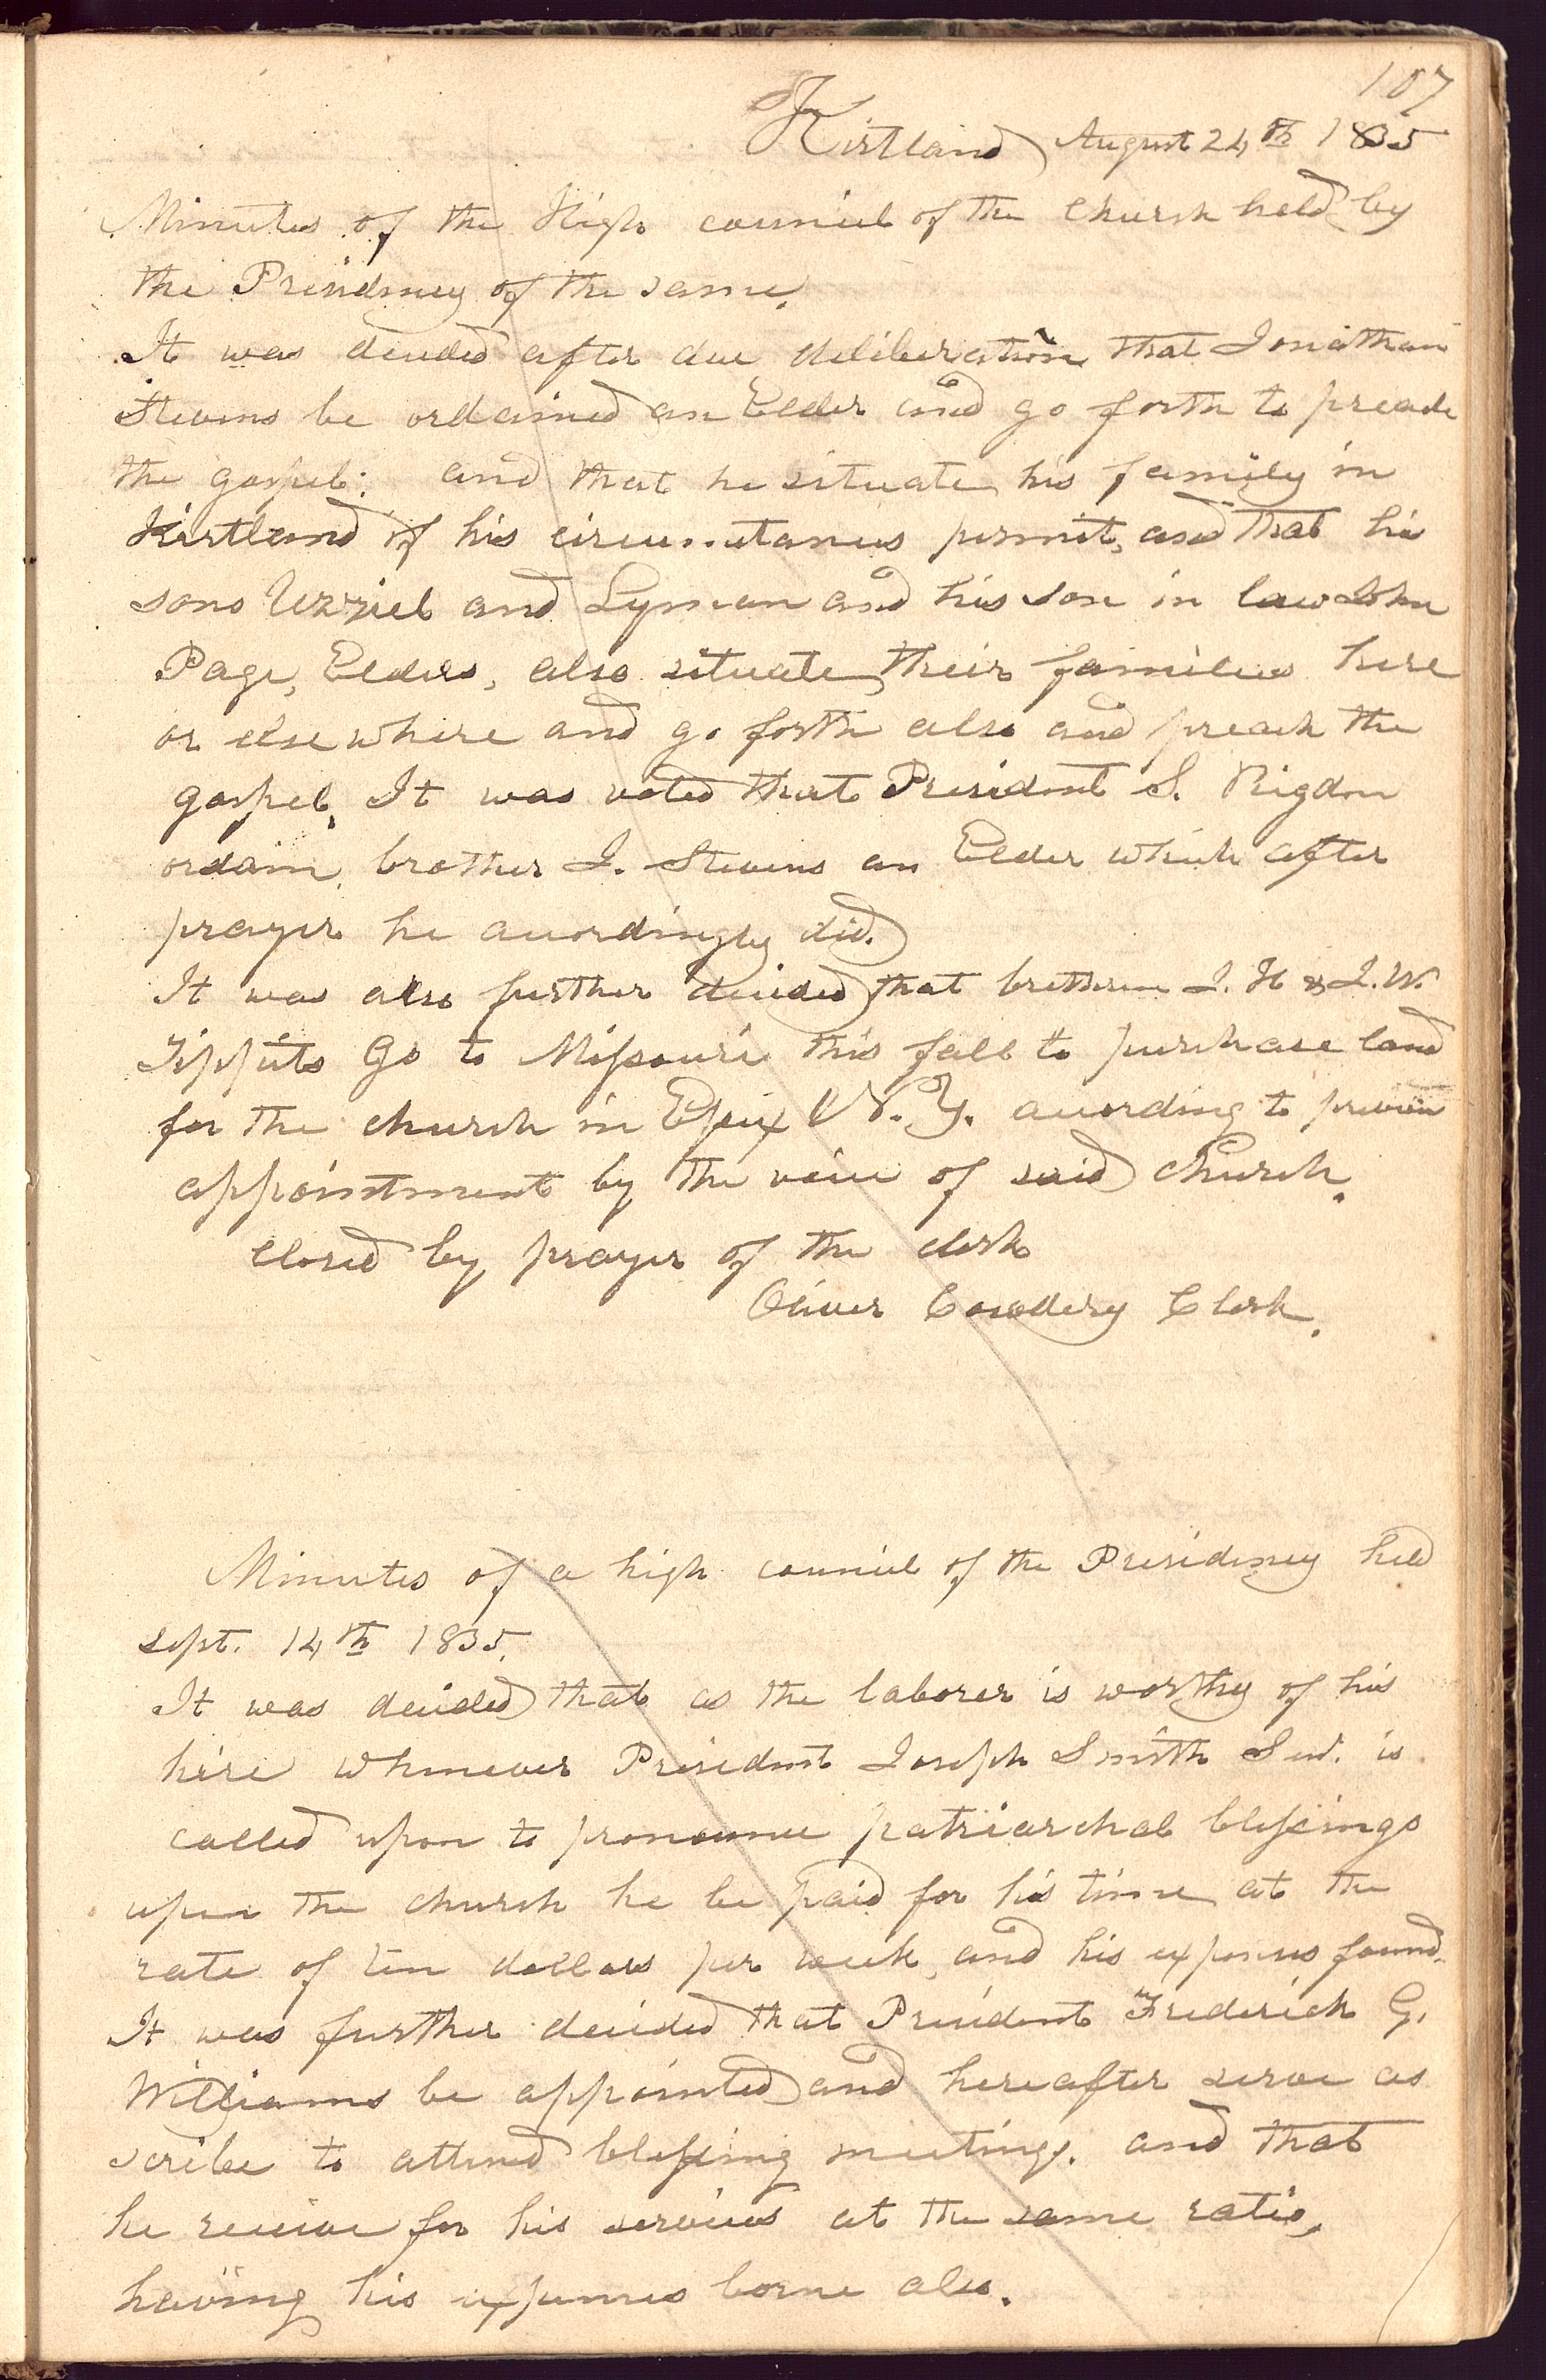 107
Kirtland August 24th 1835
Minutes of the High council of the Church held by
the Presidency of the same.
It was decided after due deliberation that Jonathan
Stevens be ordained an Elder and go forth to preach
the gospel: and that he situate his family in
Kirtland if his circumstances permit, and that his
sons Uzziel and Lyman and his son in law John
Page, Elders, also situate their families here
or else where and go forth also and preach the
gospel. It was voted that President S. Rigdon
ordain brother J. Stevens an Elder which after
prayer he accordingly did.
It was also further decided that bretheren J. H & J. W.
Tippits Go to Missouri this fall to purchase land
for the church in Essex N. Y. according to previou
appointment by the voice of said Church.
Closed by prayer of the clerk
Oliver Cowdery Clerk.
Minutes of a high council of the Presidency held
Sept. 14th 1835.
It was decided that as the laborer is worthy of his
hire whenever President Joseph Smith Sen. is
called upon to pronounce patriarchal blessings
upon the church he be paid for his time at the
rate of ten dollars per week and his expenses found.
It was further decided that President Frederick G.
Williams be appointed and hereafter serve as
scribe to attend blessing meetings. and that
he receive for his services at the same ratio,
having his expenses borne also.